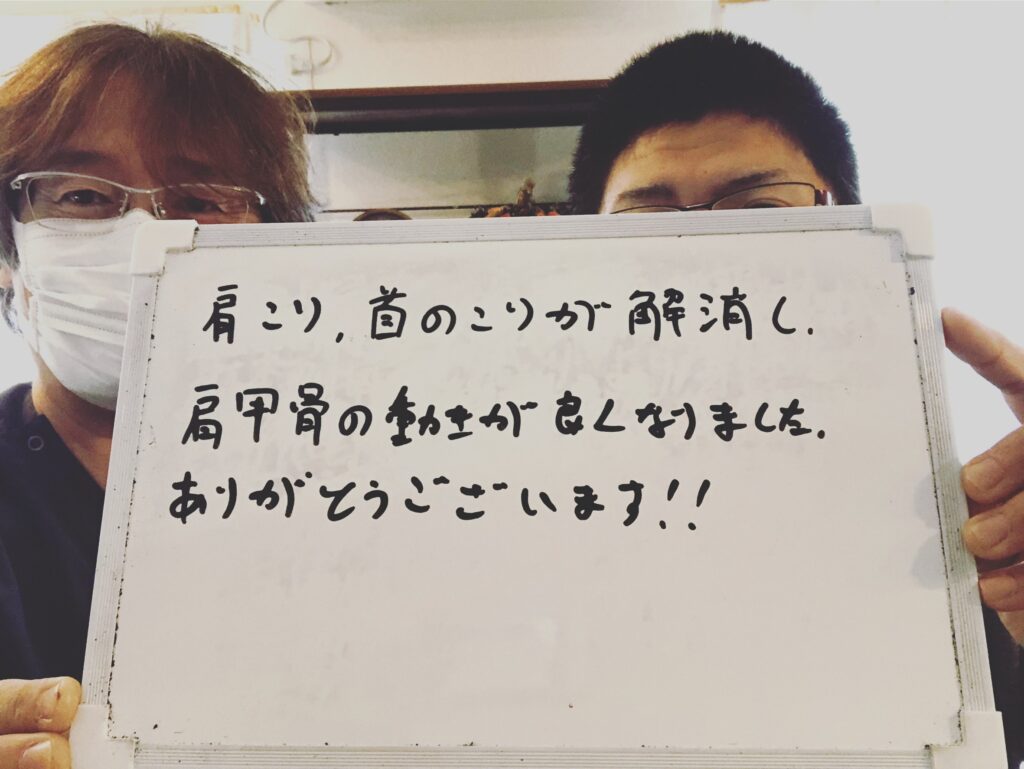 肩こり,首のこりが解消し.
肩甲骨の動きが良くなりました.
ありがとうございます!!